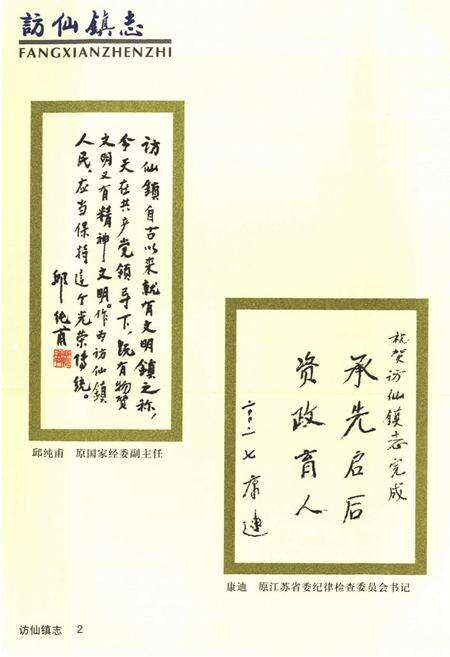 訪仙鎮志
FANGXIANZHENZHI
访仙鎮自古以来就有文明鎮之称，
今天在共产党领导下，既有物质
文明又有精神文明。作为访仙鎮
人民，应当保持这个光荣传统。
邱纯甫
邱纯甫 原国家经委副主任
祝贺访仙镇志完成
承先启后
资政育人
康迪
康迪 原江苏省委纪律检查委员会书记
访仙镇志 2